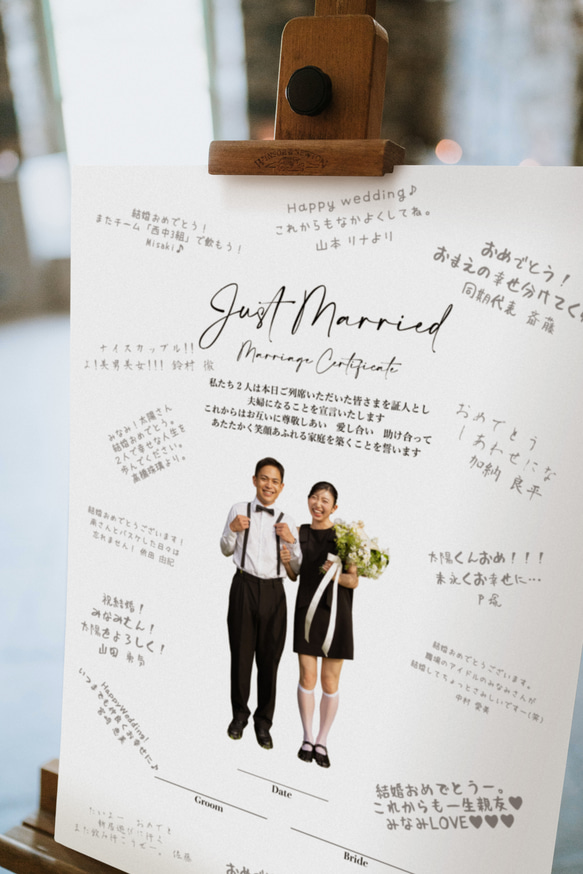 結婚おめでとう！
またチーム「西中3組」で飲もう！
Misaki♪
Happy wedding♪
これからもなかよくしてね。
山本 リナより
おめでとう！
おまえの幸せ分けてく
同期代表 斎藤
Just Married
Marriage Certificate
私たち２人は本日ご列席いただいた皆さまを証人とし
夫婦になることを宣言いたします
これからはお互いに尊敬しあい　愛し合い　助け合って
あたたかく笑顔あふれる家庭を築くことを誓います
ナイスカップル！！
よ！美男美女！！！ 鈴村 徹
みなみ！太陽さん
結婚おめでとう。
2人で幸せな人生を
歩んでください。
高橋珠璃より。
おめでとう
しあわせにな
加納 良平
結婚おめでとうございます！
南さんとバスケした日々は
忘れません！ 由紀
太陽くんおめ！！！
末永くお幸せに…
戸塚
祝結婚！
みなみたん！
太陽をよろしく！
山田
結婚おめでとうございます。
職場のアイドルのみなみさんが
結婚してちょっとさみしいですー(笑)
中村 愛美
HappyWedding!
いつまでも仲良くお幸せに♪
宮崎 恵美
Date
Groom
Bride
結婚おめでとうー。
これからも一生親友♥
みなみLOVE♥♥♥
たいよー　おめでと
新居遊びに行く
また飲み行こうぜー。 佐藤